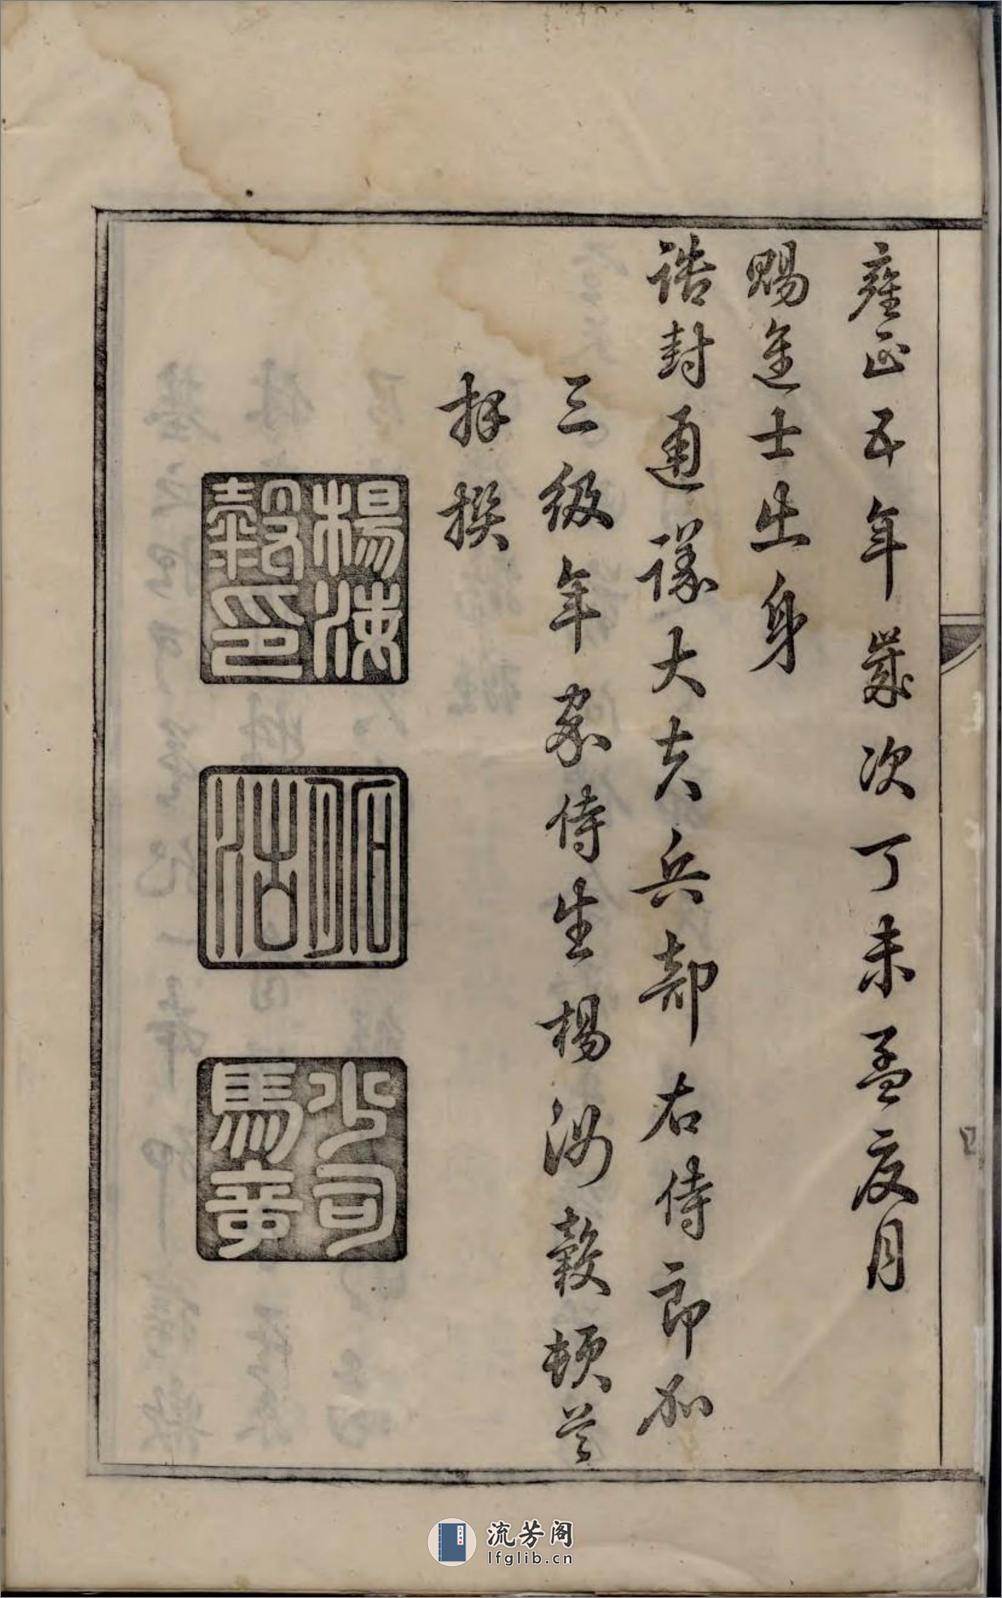 雍正五年歲次丁未孟夏月
賜進士出身
誥封通議大夫兵部右侍郎加
三級年家侍生楊汝穀頓首
拜撰
楊汝
穀印
石湖
公司
馬章
流芳阁
lfglib.cn